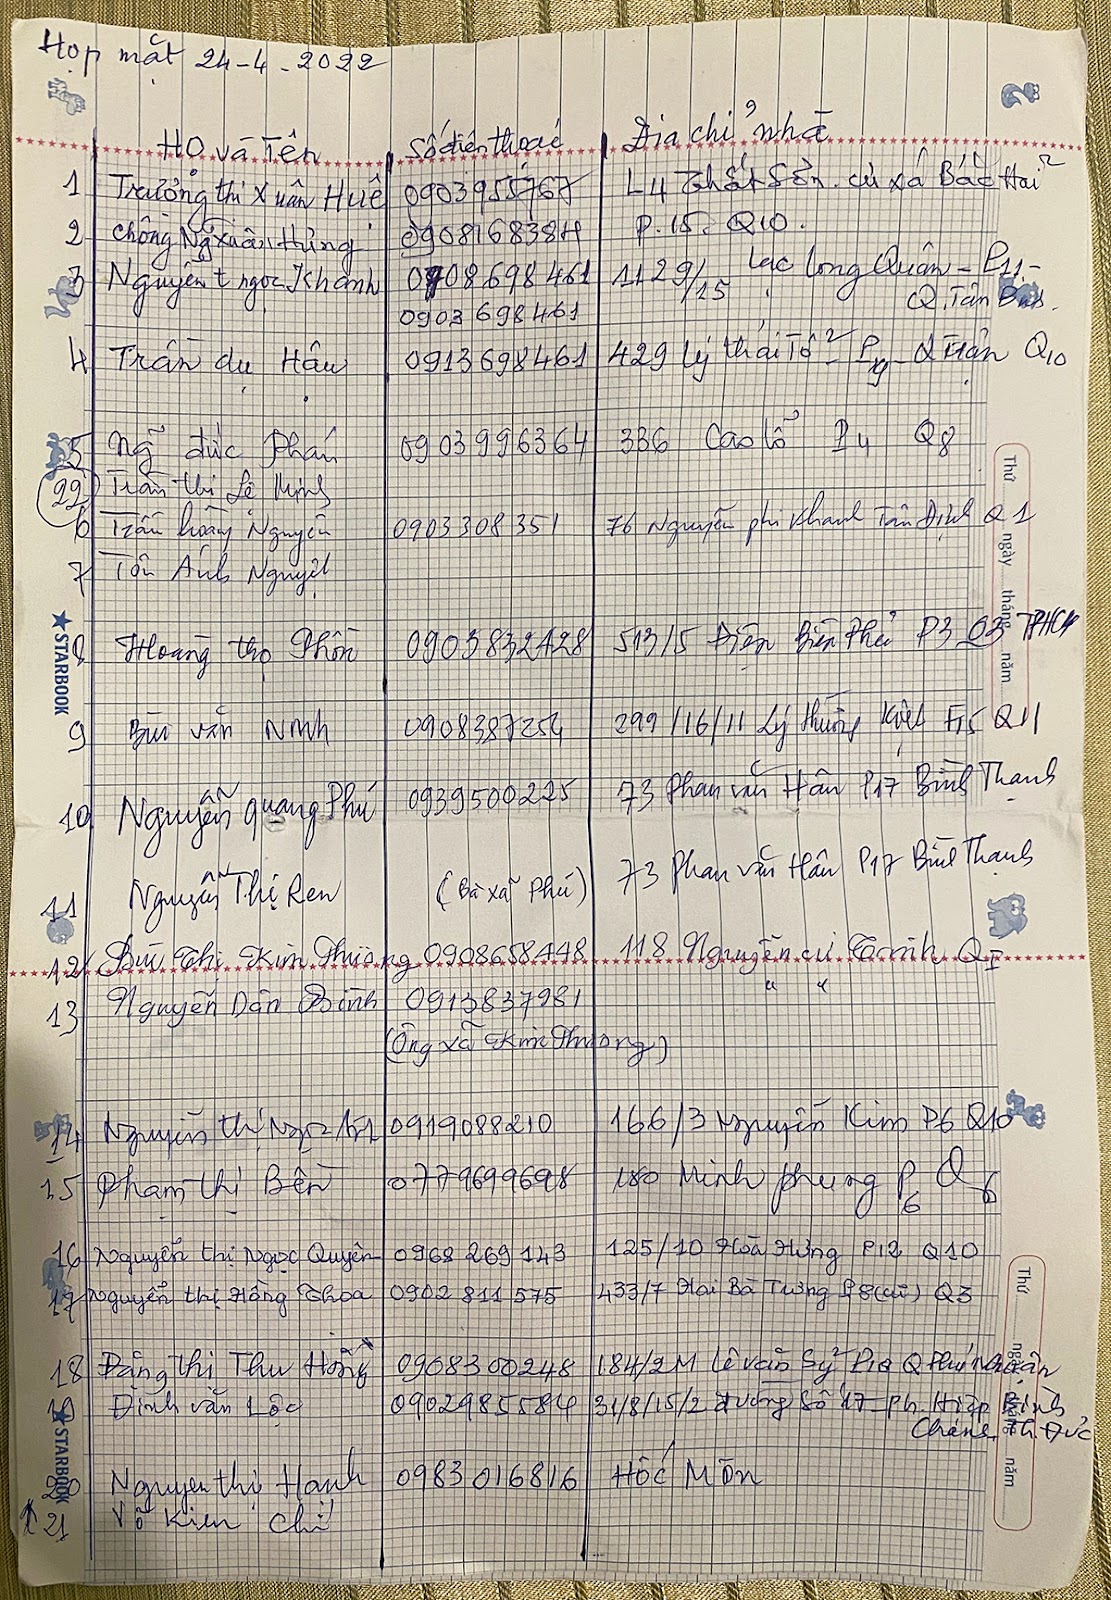 Họp mặt 24-4-2022
Họ và Tên Số điện thoại Địa chỉ nhà
1 Trương thị Xuân Huê 0903955767 L4 Thất Sơn. cư xá Bắc Hải
2 chồng Ng Xuân Hùng 0908168384 P.15. Q10.
3 Nguyễn t ngọc Khánh 0708698461 1129/15 Lạc Long Quân - P11-
0903698461 Q. Tân Bình.
4 Trần dụ Hâu 0913698461 429 Lý thái Tổ P9 - Quân Q10
5 Ng đức Phán 0903996364 336 Cao lỗ P4 Q8
22 Trần thi Lệ Minh
6 Trần hoàng Nguyên 0903308351 76 Nguyễn phi Khanh Tân Định Q1
7 Tôn Ánh Nguyệt
8 Hoàng thọ Phồn 0903832428 513/5 Điện Biên Phủ P3 Q3 TPHCM
9 Bùi văn Ninh 0908387254 299/16/11 Lý thường Kiệt F15 Q11
10 Nguyễn quang Phú 0939500225 73 Phan văn Hân P17 Bình Thạnh
11 Nguyễn Thị Ren (Bà xã Phú) 73 Phan văn Hân P17 Bình Thạnh
12 Bùi Thị Kim Phương 0908658448 118 Nguyễn cư Trinh QI
13 Nguyễn Dân Bình 0913837981 " "
(Ông xã Kim Phương)
14 Nguyễn thị Ngọc 0919088210 166/3 Nguyễn Kim P6 Q10
15 Phạm thị Bền 0779699698 180 Minh phụng P6 Q6
16 Nguyễn thị Ngọc Quyên 0968 269 143 125/10 Hoà Hưng P12 Q10
17 Nguyễn thị Hồng Thoa 0902 811 575 433/7 Hai Bà Trưng P8(cũ) Q3
18 Đặng thị Thu Hồng 0908300248 184/2M Lê văn Sỹ P10 Q Phú nhuân
19 Đinh văn Lộc 0902985584 31/8/15/2 đường số 17 - Ph. Hiệp Bình
Chánh Th. Đức
20 Nguyen thị Hạnh 0983016816 Hốc Môn
21 Võ Kien Chí
Thứ ngày tháng năm
STARBOOK
Thứ ngày năm
STARBOOK